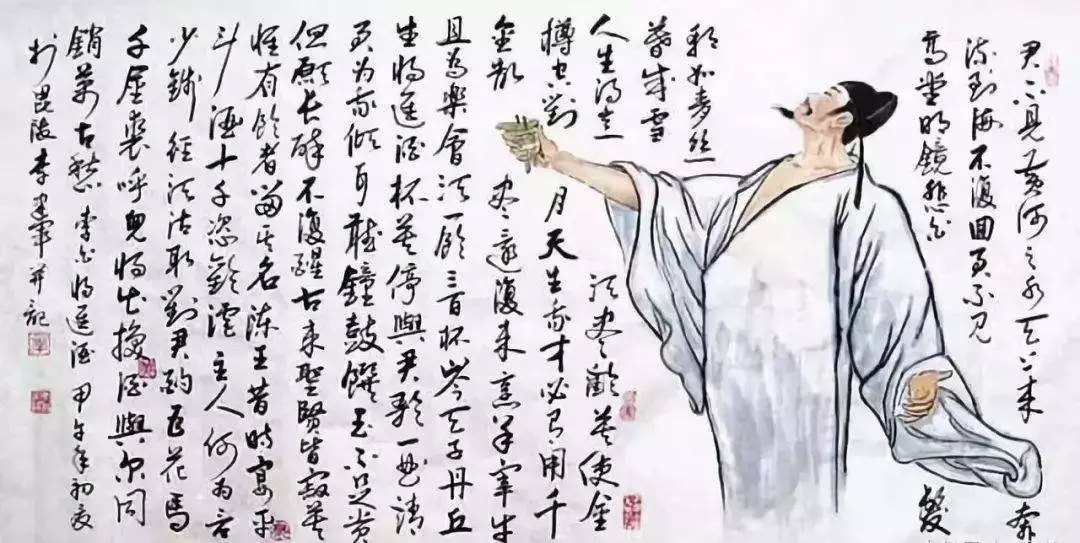 君不見黃河之水天上來 奔
流到海不復回君不見
高堂明鏡悲白 髮
朝如青絲
暮成雪
人生得意 須盡歡莫使金
樽空對 月天生我才必有用千
金散 盡還復來烹羊宰牛
且為樂會須一飲三百杯岑夫子丹丘
生將進酒杯莫停與君歌一曲請
君為我傾耳聽鐘鼓饌玉不足貴
但願長醉不復醒古來聖賢皆寂莫
惟有飲者留其名陳王昔時宴平
斗酒十千恣歡謔主人何為言
少錢徑須沽取對君酌五花馬
千金裘呼兒將出換酒與爾同
銷萬古愁 李白將進酒 甲午年初夏
於毘陵李 并記